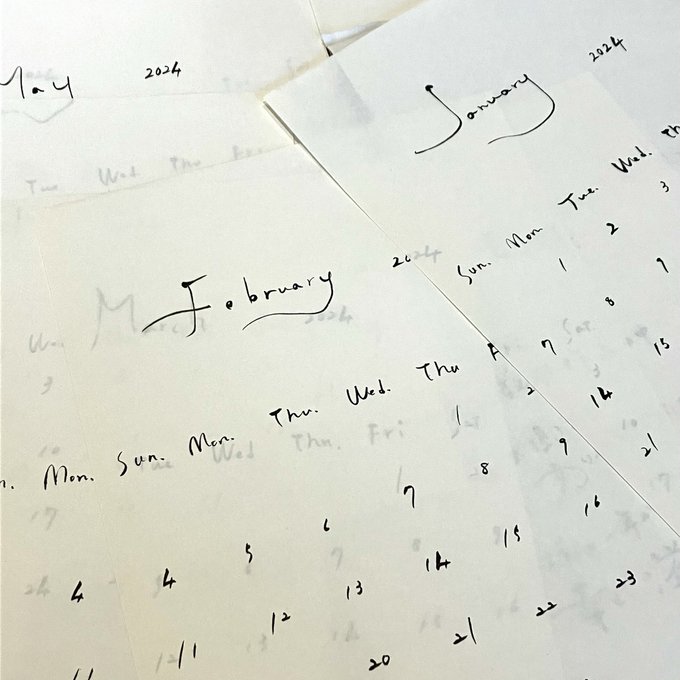 May 2024
Tue Wed Thu Fri
January 2024
Sun. Mon. Tue. Wed.
1 2 3
7 8 9
14 15
21
February 2024
Mon. Sun. Mon. Thu. Wed. Thu
1 2
4 4 5 6 7 8 9
11 11 12 13 14 15 16
20 21 22 23
March 2024
Tue Wed Thu. Fri